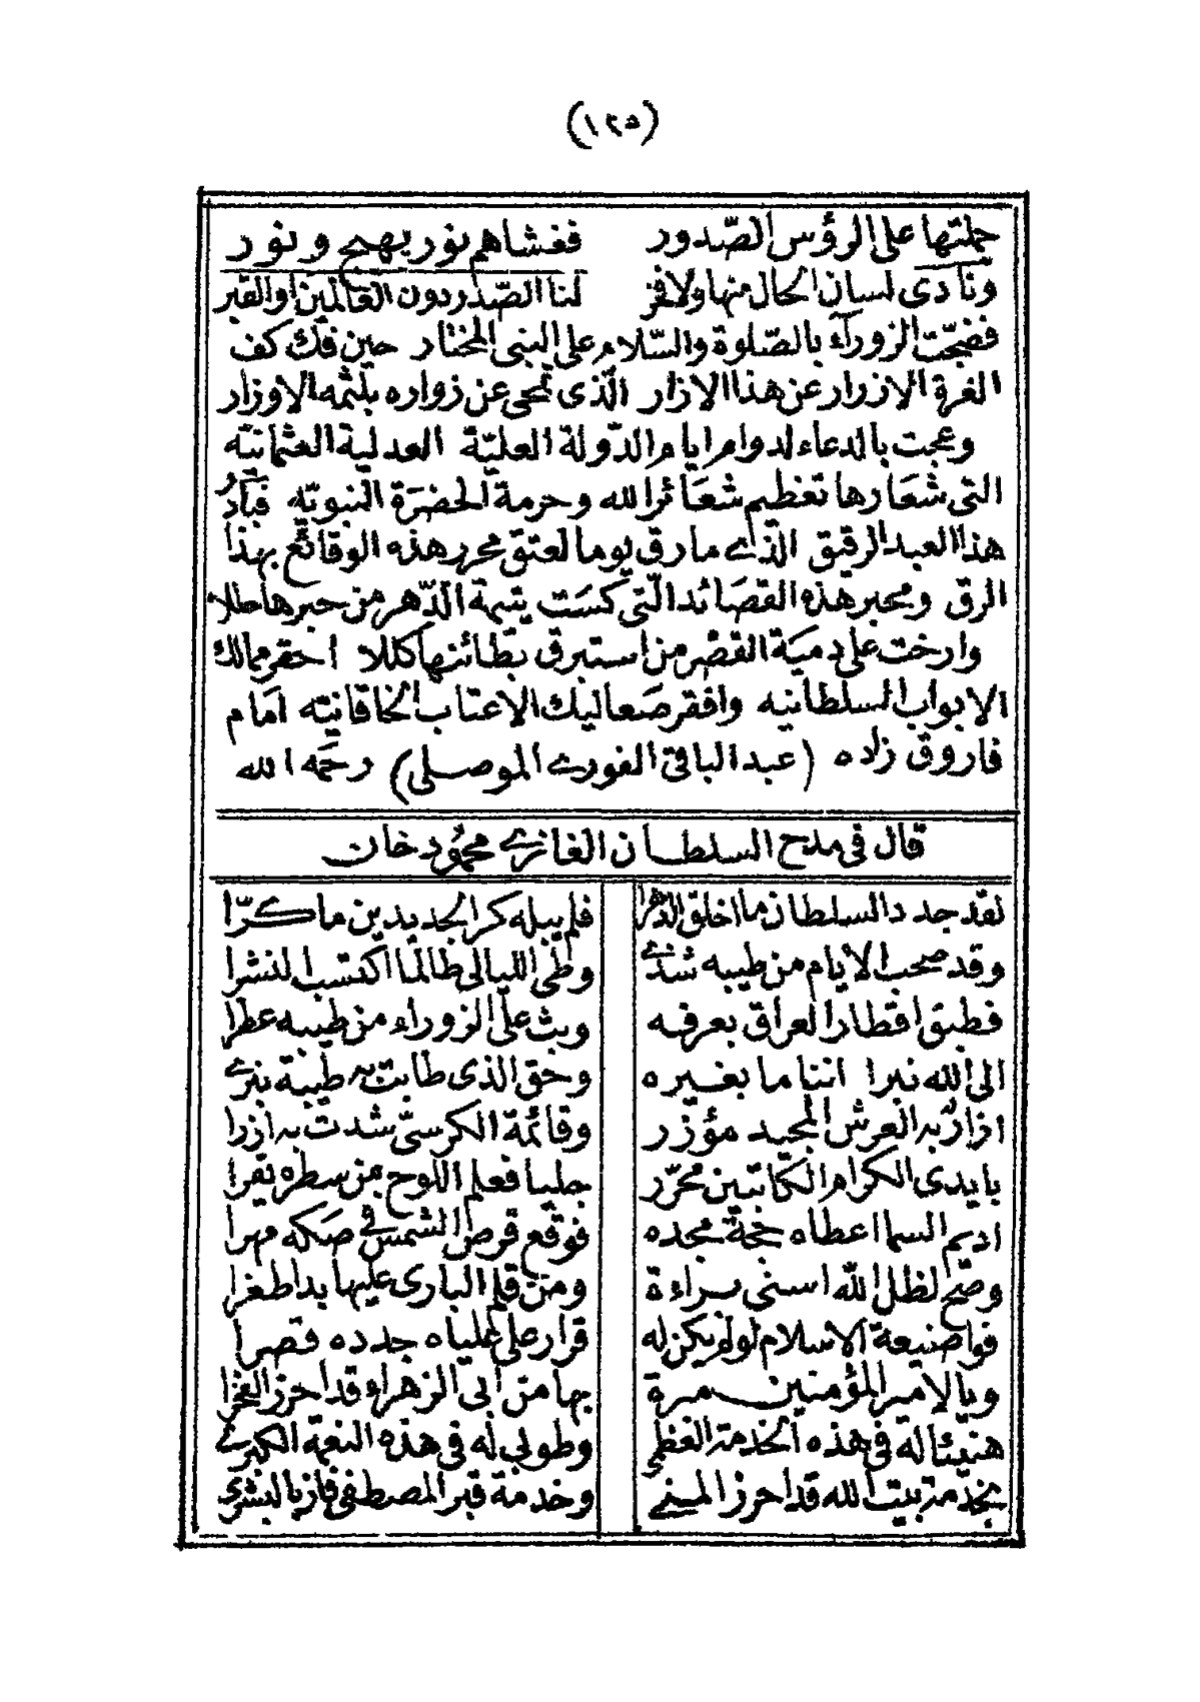 (١٢٥)
حملتها على الرؤس الصّدور فغشاهم نور بهيج ونور
ونادى لسان الحال منها ولا فخر لنا الصّدر دون العالمين او القبر
فضجّت الزورآء بالصّلوة والسّلام على النبى المختار حين فك كف
الغرة الازرار عن هذا الازار الّذى تمحى عن زواره بلثمه الاوزار
وعجت بالدعاء لدوام ايام الدّولة العليّة العدلية العثمانيّه
التى شعارها تعظيم شعَائر الله وحرمة الحضرَة النبويّه فبادر
هذا العبد الرقيق الّذى ما رق يوما لعتق محرر هذه الوقائع بهذا
الرق ومحبر هذه القصَائد الّتى كسَت يتيمة الدّهر من حبرها حللا
وارخت على دمية القصْر من استبرق بَطائنها كللا احقر مماليك
الابواب السلطانيه وافقر صَعاليك الاعتاب الخاقانيّه امَام
فاروق زاده (عبد الباقى الفورى الموصلى) رحمَه الله
قال فى مدح السلطان الغازى محمُود خان
لقد جدد السلطان ما اخلق الدهرا فلم يبله كر الجديدين ما كرّا
وقد صحب الايام من طيبه شذى وطى الليالى طالما اكتسب النشرا
فطبق اقطار العراق بعرفه وبث على الزوراء من طيبه عطرا
الى الله نبرا اننا ما بغيره وحق الذى طابت به طيبة نبرى
ازار به العرش المجيد مؤزر وقائمة الكرسىّ شدت به ازرا
بايدى الكرام الكاتبين محرّر جليا فعلم اللوح من سطره يقرا
اديم السما اعطاه حجة مجده فوقع قرص الشمس فى صَكه مهرا
وصَح لظل الله اسنى براءة ومن قلم البارى عليها بدا طغرا
فواضيعة الاسلام لو لم يكن له قرار على علياه جدده قصرا
وبالامير المؤمنين مبرة بها من ابى الزهراء قد احرز الفخرا
هنيئا له فى هذه الخدمة العظمى وطوبى له فى هذه النعمة الكبرى
بخدمة بيت الله قد احرز المنى وخدمة قبر المصطفى فاز بالبشرى